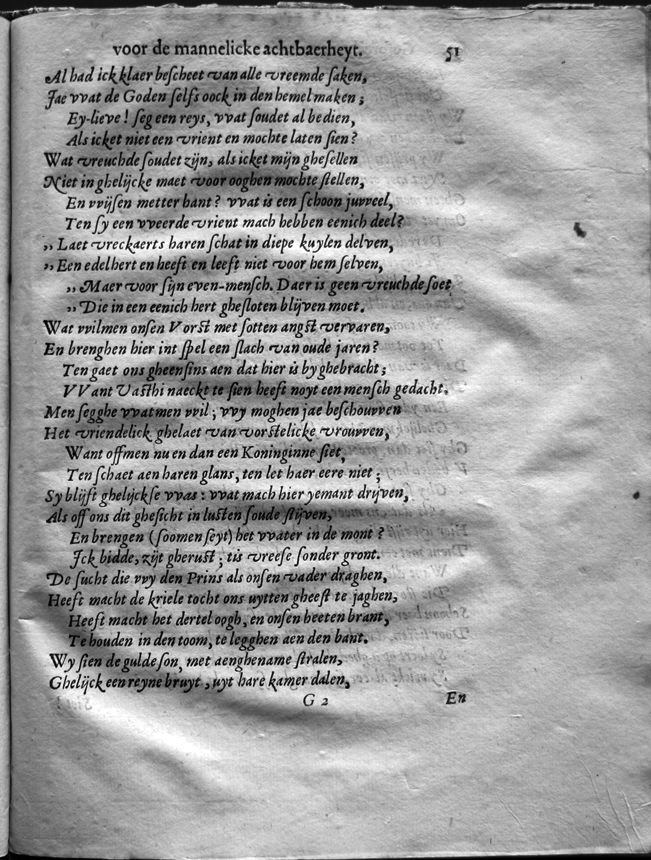 voor de mannelicke achtbaerheyt. 51
Al had ick klaer bescheet van alle vreemde saken,
Jae vvat de Goden selfs oock in den hemel maken;
Ey-lieve! seg een reys, vvat soudet al bedien,
Als icket niet een vrient en mochte laten sien?
Wat vreuchde soudet zijn, als icket mijn ghesellen
Niet in ghelijcke maet voor ooghen mochte stellen,
En vvijsen metter hant? vvat is een schoon juvveel,
Ten sy een vveerde vrient mach hebben eenich deel?
,, Laet vreckaerts haren schat in diepe kuylen delven,
,, Een edel hert en heeft en leeft niet voor hem selven,
,, Maer voor sijn even-mensch. Daer is geen vreuchde soet
,, Die in een eenich hert ghesloten blijven moet.
Wat vvilmen onsen Vorst met sotten angst vervaren,
En brenghen hier int spel een slach van oude jaren?
Ten gaet ons gheensins aen dat hier is by ghebracht;
VVant Vasthi naeckt te sien heeft noyt een mensch gedacht.
Men segghe vvatmen vvil; vvy moghen jae beschouvven
Het vriendelick ghelaet van vorstelicke vrouvven,
Want offmen nu en dan een Koninginne siet,
Ten schaet aen haren glans, ten let haer eere niet;
Sy blijft ghelijckse vvas: vvat mach hier yemant drijven,
Als off ons dit ghesicht in lusten soude stijven,
En brengen (soomen seyt) het vvater in de mont?
Jck bidde, zijt gherust; tis vreese sonder gront.
De sucht die vvy den Prins als onsen vader draghen,
Heeft macht de kriele tocht ons uytten gheest te jaghen,
Heeft macht het dertel oogh, en onsen heeten brant,
Te houden in den toom, te legghen aen den bant.
Wy sien de gulde son, met aenghename stralen,
Ghelijck een reyne bruyt, uyt hare kamer dalen,
G 2 En